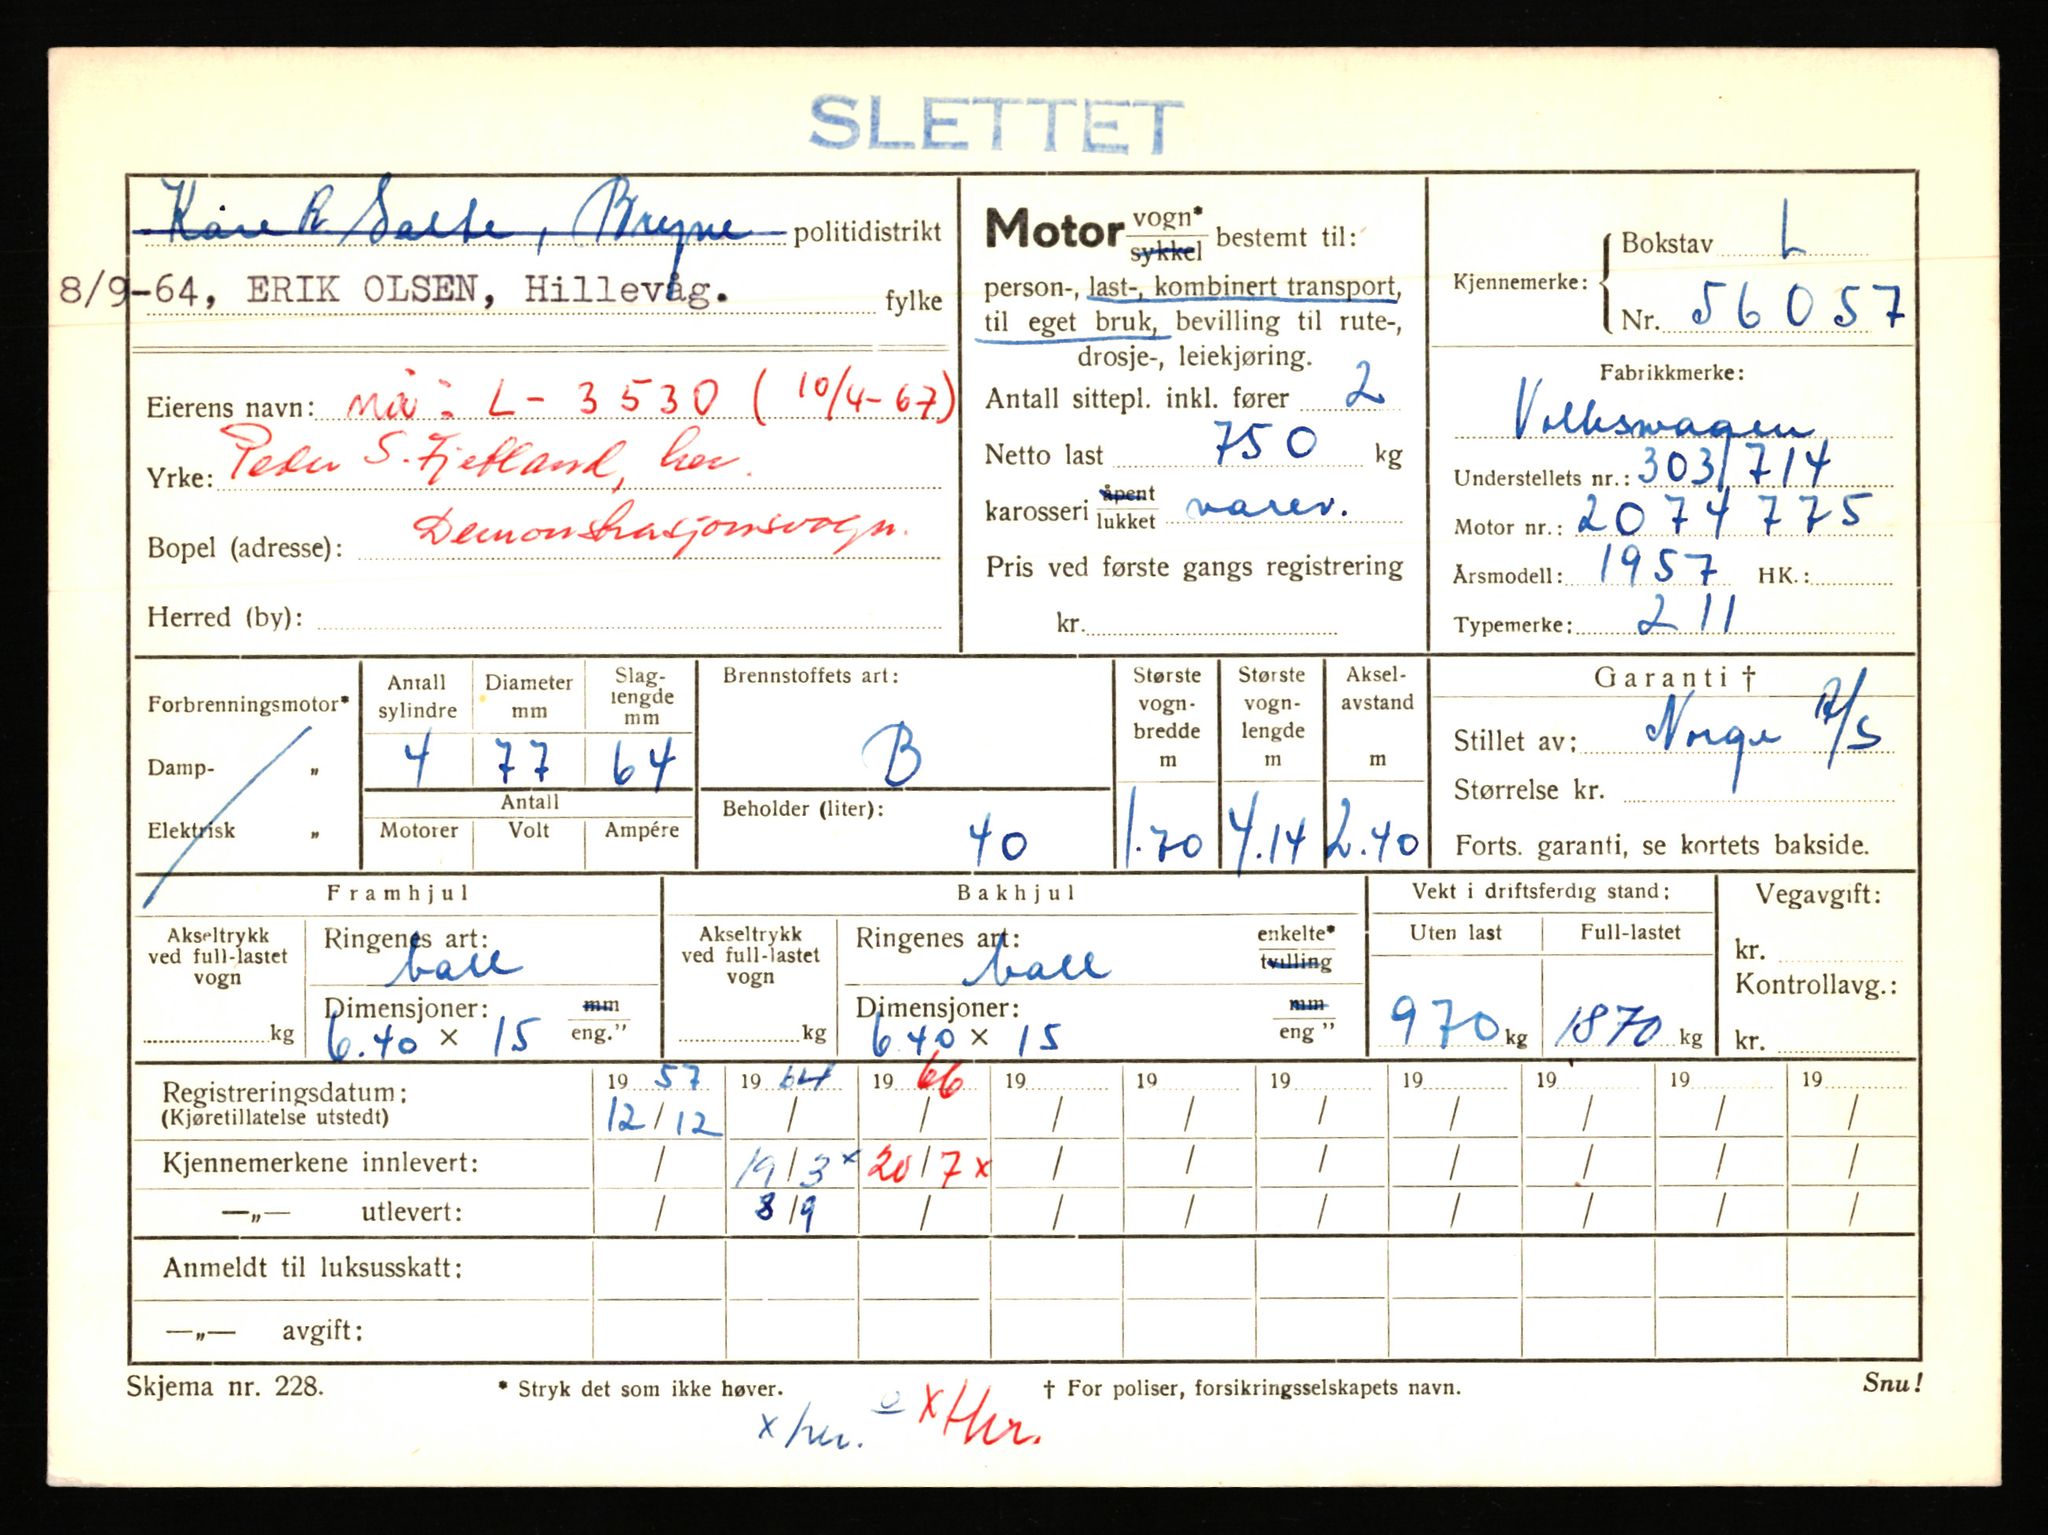 SLETTET
Kåre R Salte, Bryne politidistrikt
8/9-64, ERIK OLSEN, Hillevåg. fylke
Eierens navn: nå: L - 3530 (10/4-67)
Yrke: Peder S. Fjetland, her.
Bopel (adresse): Demonstrasjonsvogn.
Herred (by):
Motor vogn* sykkel bestemt til:
person-, last-, kombinert transport,
til eget bruk, bevilling til rute-,
drosje-, leiekjøring.
Antall sittepl. inkl. fører 2
Netto last 750 kg
karosseri åpent lukket varev.
Pris ved første gangs registrering
kr.
Kjennemerke: Bokstav L
Nr. 56057
Fabrikkmerke:
Volkswagen
Understellets nr.: 303/714
Motor nr.: 2074775
Årsmodell: 1957 HK.:
Typemerke: 211
Forbrenningsmotor*
Damp- „
Elektrisk „
Antall sylindre Diameter mm Slaglengde mm
4 77 64
Antall
Motorer Volt Ampére
Brennstoffets art:
B
Beholder (liter):
40
Største vogn-bredde m
1.70
Største vogn-lengde m
4.14
Aksel-avstand m
2.40
Garanti †
Stillet av: Norge A/S
Størrelse kr.
Forts. garanti, se kortets bakside.
Framhjul
Akseltrykk ved full-lastet vogn
kg
Ringenes art:
ball
Dimensjoner: mm
6.40 x 15 eng."
Bakhjul
Akseltrykk ved full-lastet vogn
kg
Ringenes art: enkelte* tvilling
ball
Dimensjoner: mm
6.40 x 15 eng "
Vekt i driftsferdig stand:
Uten last Full-lastet
970 kg 1870 kg
Vegavgift:
kr.
Kontrollavg.:
kr.
Registreringsdatum: 19 57 19 64 19 66 19 19 19 19 19 19 19
(Kjøretillatelse utstedt) 12/12 / / / / / / / / /
Kjennemerkene innlevert: / 19/3x 20/7x / / / / / / /
—„— utlevert: / 8/9 / / / / / / / /
Anmeldt til luksusskatt:
—„— avgift:
Skjema nr. 228. * Stryk det som ikke høver. † For poliser, forsikringsselskapets navn. Snu!
x her. x Her.